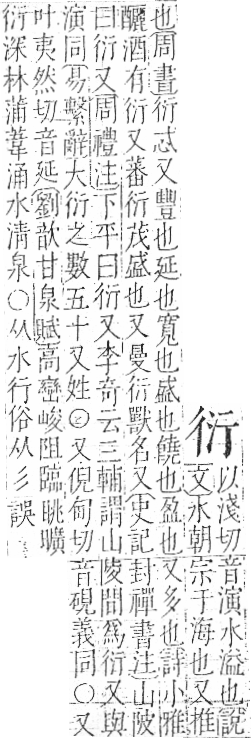 衍
以淺切音演水溢也說
文水朝宗于海也又推
也周書衍忒又豐也延也寬也盛也饒也盈也又多也詩小雅
釃酒有衍又蕃衍茂盛也又曼衍獸名又史記封禪書注山阪
曰衍又周禮注下平曰衍又李奇云三輔謂山陵間爲衍又與
演同易繫辭大衍之數五十又姓○又倪甸切音硯義同○又
叶夷然切音延劉歆甘泉賦高巒峻阻臨眺曠
衍深林蒲葦涌水清泉○从水行俗从彡誤